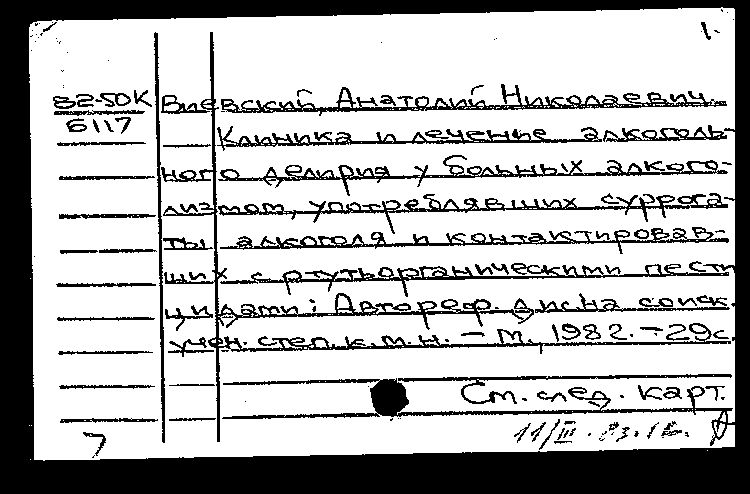 1.
82-50К Виевский, Анатолий Николаевич.
6117 Клиника и лечение алкоголь-
ного делирия у больных алкого-
лизмом, употреблявших суррога-
ты алкоголя и контактировав-
ших с ртутьорганическими пести
цидами: Автореф. дис на соиск.
учен. степ. к.м.н. - М., 1982. - 29с.
См. след. карт.
7 11/III. 83.